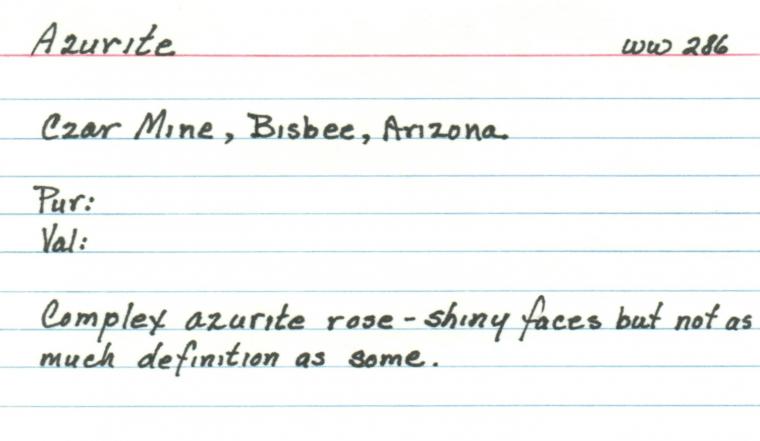 Azurite WW 286
Czar Mine, Bisbee, Arizona.
Pur:
Val:
Complex azurite rose - shiny faces but not as
much definition as some.